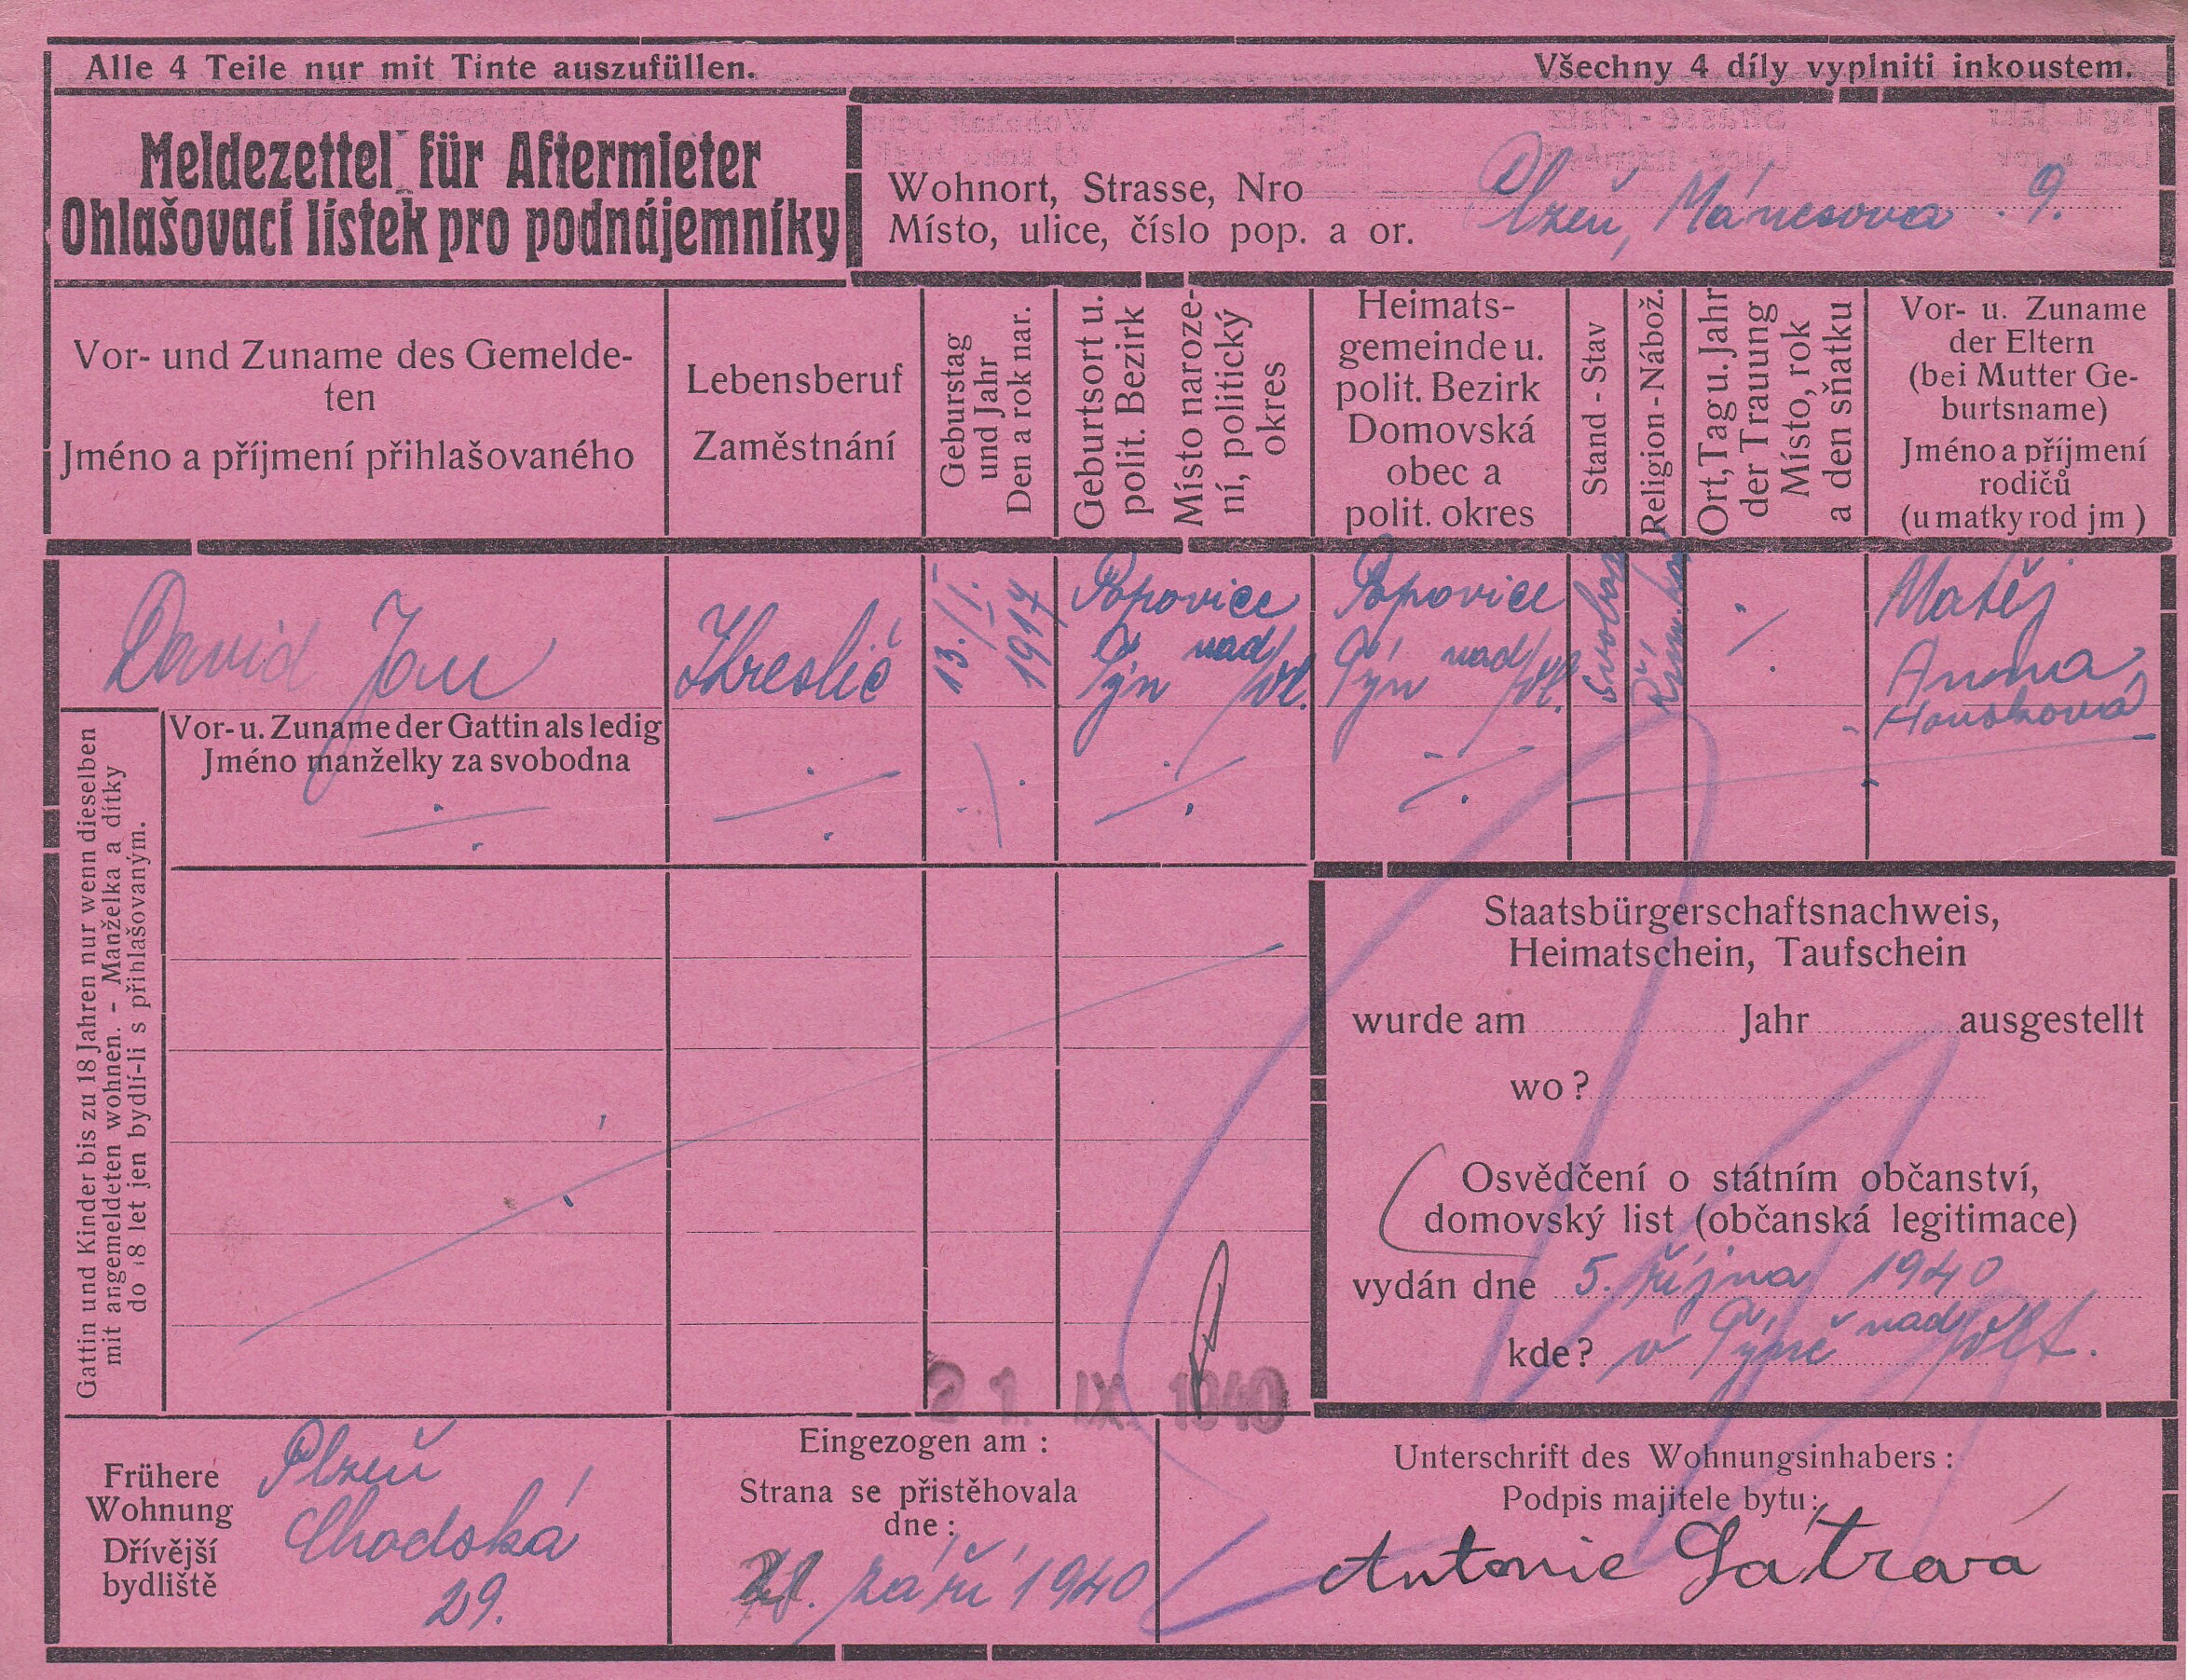 Alle 4 Teile nur mit Tinte auszufüllen.
Všechny 4 díly vyplniti inkoustem.
Meldezettel für Aftermieter
Ohlašovací lístek pro podnájemníky
Wohnort, Strasse, Nro
Místo, ulice, číslo pop. a or.
Plzeň, Mánesova 9.
Vor- und Zuname des Gemelde-
ten
Jméno a příjmení přihlašovaného
Lebensberuf
Zaměstnání
Geburstag
und Jahr
Den a rok nar.
Geburtsort u.
polit. Bezirk
Místo naroze-
ní, politický
okres
Heimats-
gemeinde u.
polit. Bezirk
Domovská
obec a
polit. okres
Stand - Stav
Religion - Nábož.
Ort, Tag u. Jahr
der Trauung
Místo, rok
a den sňatku
Vor- u. Zuname
der Eltern
(bei Mutter Ge-
burtsname)
Jméno a příjmení
rodičů
(u matky rod jm )
David Jan
Kreslič
13./I.
1917
Popovice
Týn nad/Vl.
Popovice
Týn nad/Vl.
Matěj
Anna
Housková
Vor- u. Zuname der Gattin als ledig
Jméno manželky za svobodna
Gattin und Kinder bis zu 18 Jahren nur wenn dieselben
mit angemeldeten wohnen. - Manželka a dítky
do 18 let jen bydlí-li s přihlašovaným.
Staatsbürgerschaftsnachweis,
Heimatschein, Taufschein
wurde am Jahr ausgestellt
wo?
Osvědčení o státním občanství,
domovský list (občanská legitimace)
vydán dne 5. října 1940
kde? v Týně nad/Vlt.
21. IX. 1940
Frühere
Wohnung
Dřívější
bydliště
Plzeň
Chodská
29.
Eingezogen am :
Strana se přistěhovala
dne :
září 1940
Unterschrift des Wohnungsinhabers :
Podpis majitele bytu :
Antonie